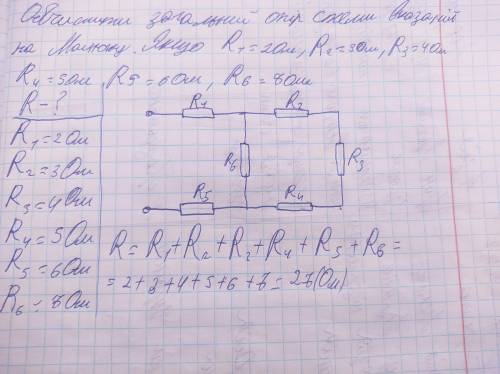 Обчислити загальний опір схеми вказаний
на малюнку. Якщо R1=2Ом, R2=3Ом, R3=4Ом
R4=5Ом, R5=6Ом, R6=8Ом
R-?
R1=2Ом
R2=3Ом
R3=4Ом
R4=5Ом
R5=6Ом
R6=8Ом
R1
R2
R6
R3
R5
R4
R=R1+R2+R3+R4+R5+R6=
=2+3+4+5+6+8=28(Ом)